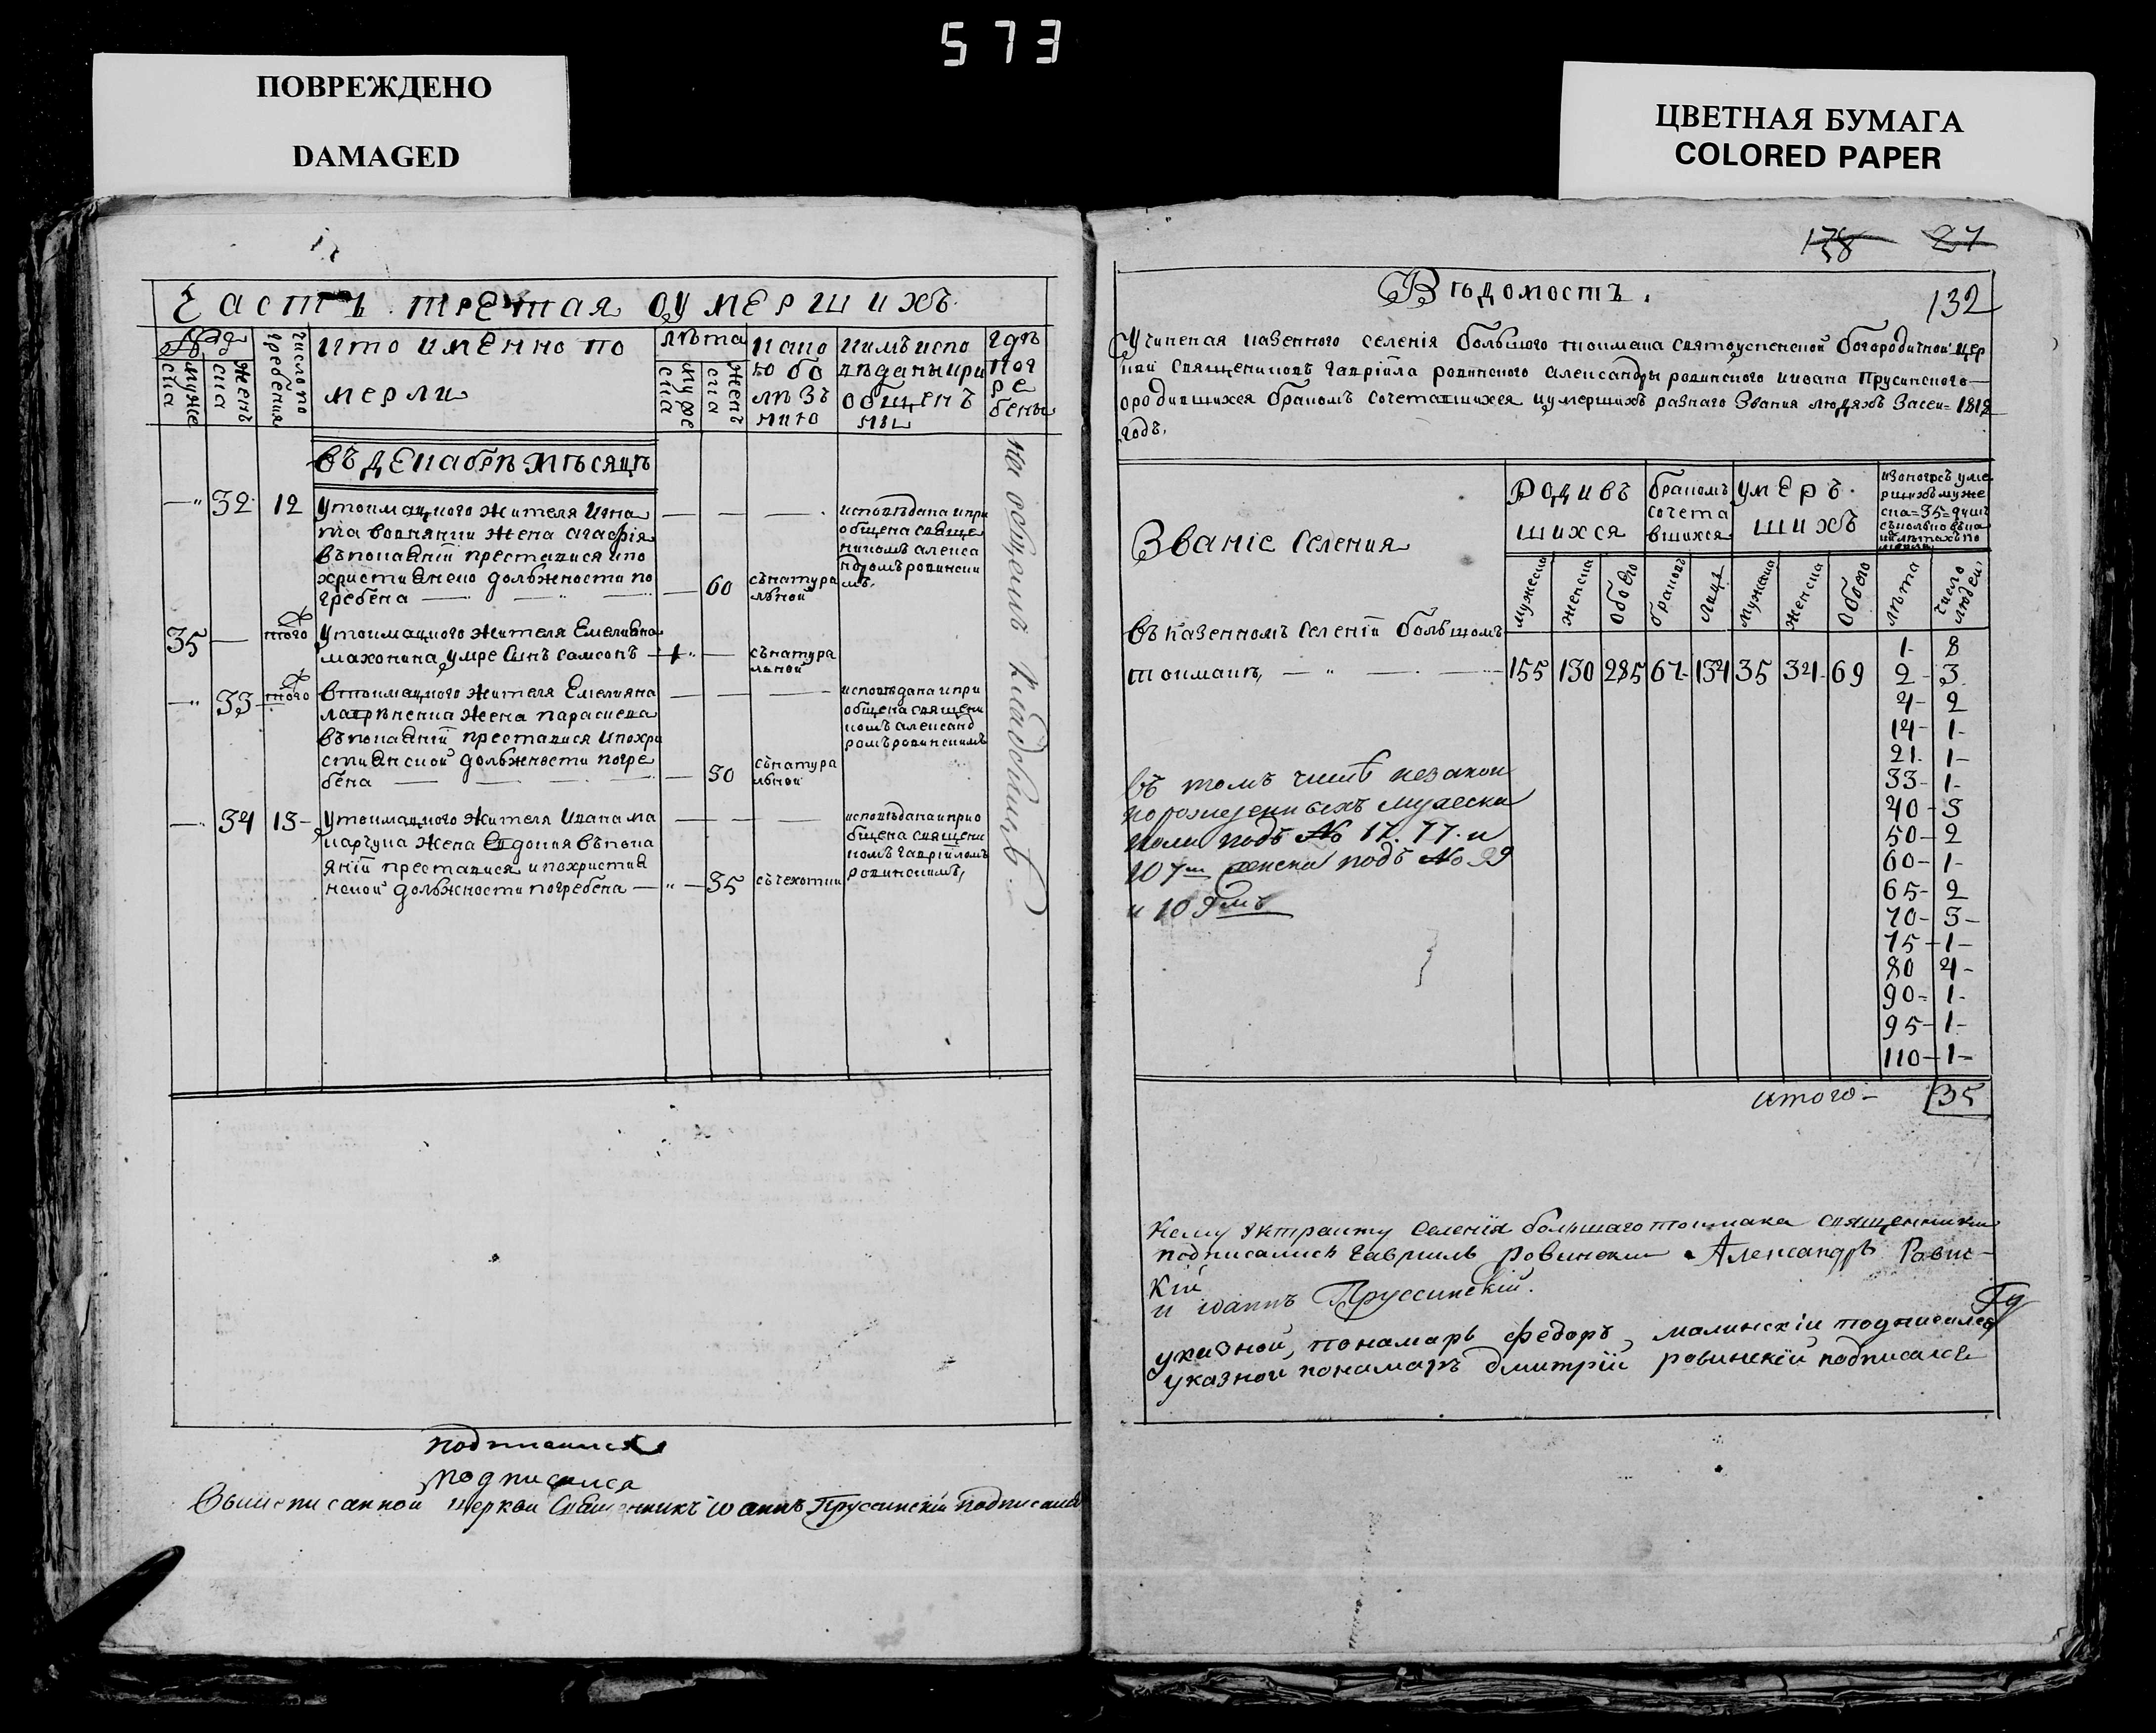 573
ПОВРЕЖДЕНО
DAMAGED
ЦВЕТНАЯ БУМАГА
COLORED PAPER
Часть третая оумершихъ.
№
муже
ска
женъ
ска
число по
гребения
кто именно по
мерли
лѣта
муже
ска
женъ
ска
како
ю бо
лѣзъ
нию
кимъ испо
вѣданы и при
общенъ
ны
гдѣ
пог
ре
бены
въ декабрѣ мѣсяцѣ
32 12 у токмацкого жителя Игна
та жена агафія
въ покаяніи преставися и по
християнско должности по
гребена 60
съ натура
льной
исповѣдана и при
общена свяще
никомъ алекса
ндромъ ровински
мъ.
на общемъ кладбищѣ
35 того у токмацкого жителя Емелияна
махонина умре сынъ самсонъ 1
съ натура
льной
33 того в токмацкого жителя Емелияна
жена параскева
въ покаяніи преставися и похри
стиянской должности погре
бена 50
съ натура
льной
исповѣдана и при
общена священи
комъ александ
ромъ ровинскимъ
34 13 у токмацкого жителя Ивана ма
жена Евдокия въ пока
яніи преставися и похристия
нской должности погребена 35 съ чехотки
исповѣдана и прио
бщена священи
комъ гавріиломъ
ровинскимъ,
подписался
подписался
Вышеписанной церкви Священникъ Іоаннъ Пруссинскій подписался
178 27
132
Вѣдомость.
Учиненая казенного селенія большого токмака святоуспенской богородичной цер
кви священиковъ гавріила ровинского александры ровинского и ивана Прусинского
о родившихся бракомъ сочетавшихся и умершихъ разнаго звания людяхъ за сей 1812
годъ.
Званіе селения
родивъ
шихся
бракомъ
сочета
вшихся
умеръ
шихъ
из коихъ уме
ршихъ муже
ска 35 душъ
съколько въ ка
кихъ лѣтахъ по
мерли
мужеска
женска
обоего
браковъ
лицъ
мужеска
женска
обоего
лѣта
число
людей
въ казенномъ селеніи большомъ
токмакѣ, 155 130 285 67 134 35 34 69
1 8
2 3
4 2
14 1
21 1
33 1
40 3
50 2
60 1
65 2
70 3
75 1
80 4
90 1
95 1
110 1
итого 35
въ томъ числѣ незакон
норожденныхъ мужеска
пола подъ № 17. 77. и
107м женска подъ № 99
и 109мъ
Ксему эктракту селенія большаго токмака священники
подписались гавриилъ ровински Александръ Ровис-
кій
и іоаннъ Пруссинскій.
указной, понамарь федоръ малинскіи подписался
указной понамарь дмитрій ровинскій подписался